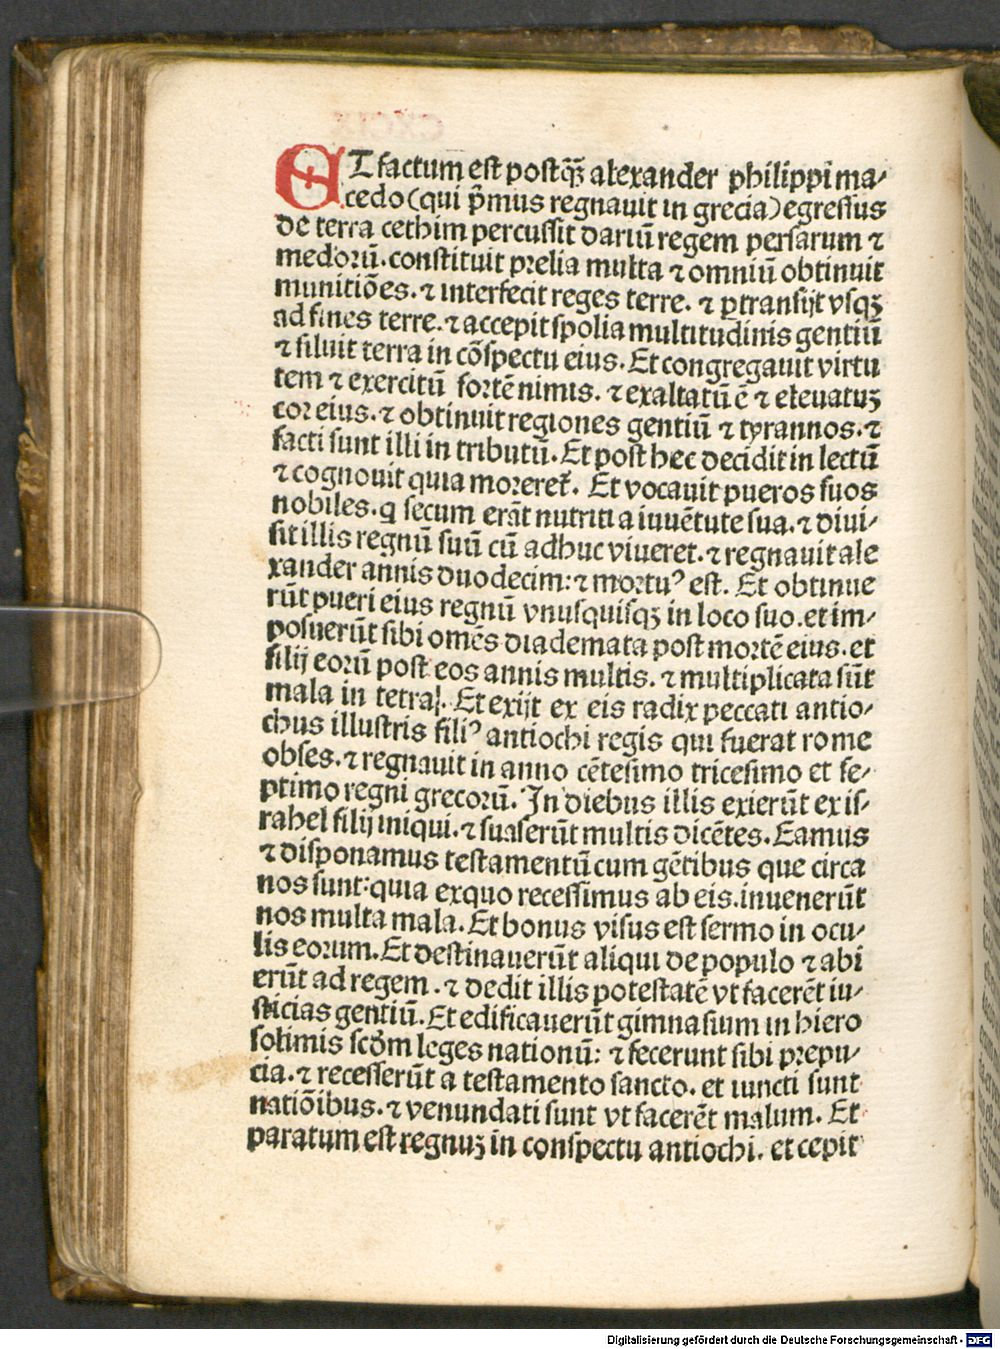 ET factum est postq̄ꝫ alexander philippi ma⸗
cedo (qui p̄mus regnauit in grecia) egressus
de terra cethim percussit dariū regem persarum ⁊
medoꝛū. constituit prelia multa ⁊ omniū obtinuit
munitiōes. ⁊ interfecit reges terre. ⁊ ꝑtransijt vsqꝫ
ad fines terre. ⁊ accepit spolia multitudinis gentiū
⁊ siluit terra in cōspectu eius. Et congregauit virtu
tem ⁊ exercitū fortē nimis. ⁊ exaltatū ē ⁊ eleuatuꝫ
cor eius. ⁊ obtinuit regiones gentiū ⁊ tyrannos. ⁊
facti sunt illi in tributū. Et post hec decidit in lectū
⁊ cognouit quia moreret̄. Et vocauit pueros suos
nobiles. q secum erāt nutriti a iuuētute sua. ⁊ diui⸗
sit illis regnū suū cū adhuc viueret. ⁊ regnauit ale
xander annis duodecim: ⁊ moꝛtuꝰ est. Et obtinue
rūt pueri eius regnū vnusquisqꝫ in loco suo. et im⸗
posuerūt sibi omēs diademata post moꝛtē eius. et
filij eoꝛū post eos annis multis. ⁊ multiplicata sūt
mala in terra. Et exijt ex eis radix peccati antio⸗
chus illustris filiꝰ antiochi regis qui fuerat rome
obses. ⁊ regnauit in anno cētesimo tricesimo et se⸗
ptimo regni grecoꝛū. In diebus illis exierūt ex is⸗
rahel filij iniqui. ⁊ suaserūt multis dicētes. Eamus
⁊ disponamus testamentū cum gētibus que circa
nos sunt: quia exquo recessimus ab eis. inuenerūt
nos multa mala. Et bonus visus est sermo in ocu⸗
lis eoꝛum. Et destinauerūt aliqui de populo ⁊ abi
erūt ad regem. ⁊ dedit illis potestatē vt facerēt iu⸗
sticias gentiū. Et edificauerūt gimnasium in hiero
solimis scd̄m leges nationū: ⁊ fecerunt sibi prepu⸗
cia. ⁊ recesserūt a testamento sancto. et iuncti sunt
natiōibus. ⁊ venundati sunt vt facerēt malum. Et
paratum est regnuꝫ in conspectu antiochi. et cepit
Digitalisierung gefördert durch die Deutsche Forschungsgemeinschaft - DFG